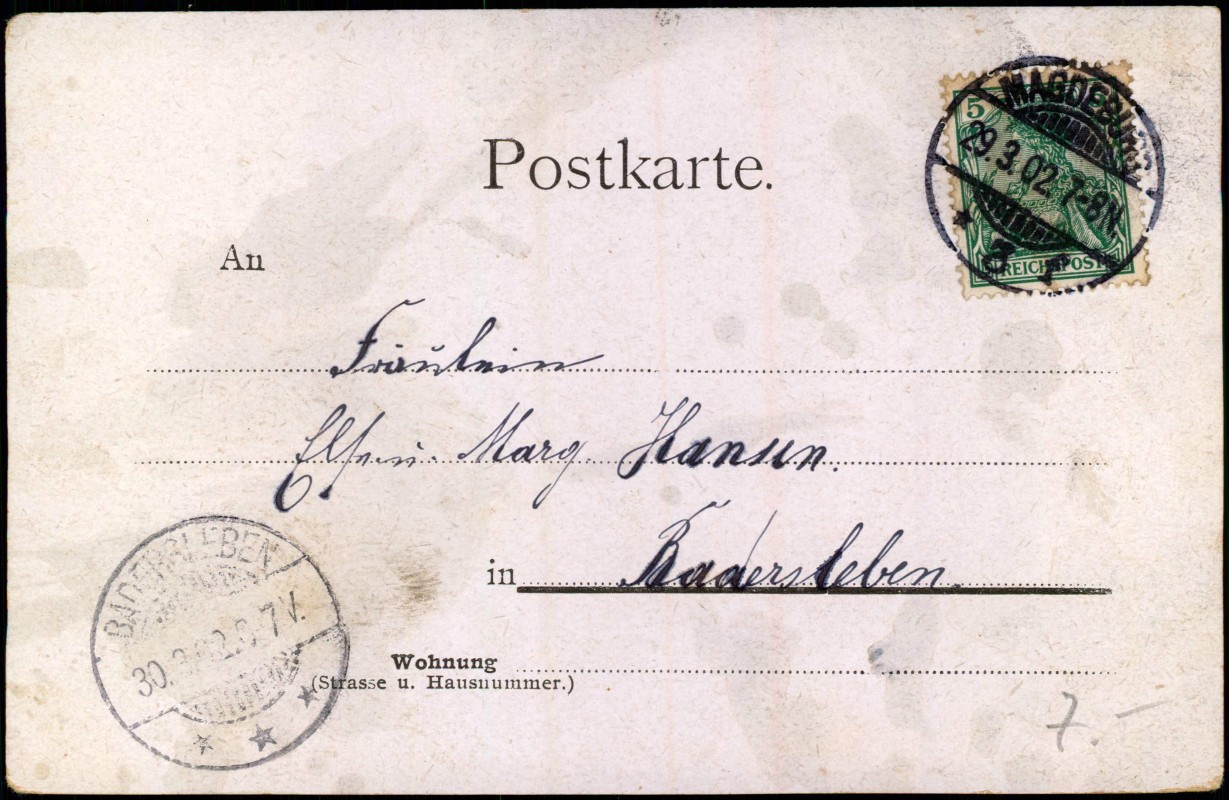 Postkarte.
MAGDEBURG
29.3.02.7-8N.
5
REICHSPOST
An
Fräulein
Else u. Marg. Hansen.
in Badersleben.
BADERSLEBEN
30.3.02. 7V.
Wohnung
(Strasse u. Hausnummer.)
7.-